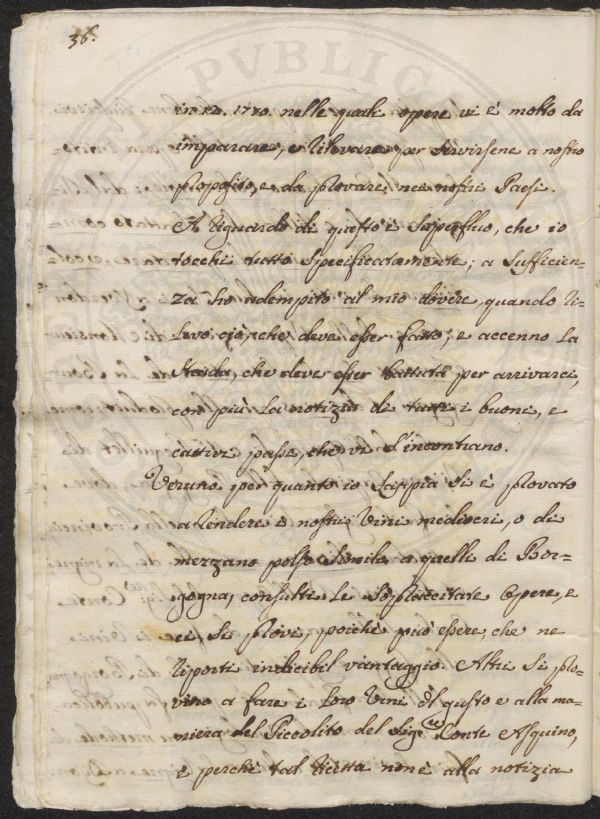 36.
PVBLICA
in 12. 1770. nelle quali opere vi è molto da
imparare, e rilevare per servirsene a nostro
proposito, e da provare nei nostri Paesi.
A riguardo di questo è superfluo, che io
tocchi tutto specificatamente; a sufficien-
za ho adempito al mio dovere, quando ri-
levo ciò, che deve esser fatto; e accenno la
strada, che deve esser battuta per arrivarci,
con più la notizia di tutti i buoni, e
cattivi passi, che vi s'incontrano.
Veruno per quanto io sappia si è provato
a rendere i nostri vini mediocri, o di
mezzano polso simile a quelli di Bor-
gogna, consulti le sopraccitate Opere, e
ci si provi, poichè può essere, che ne
riporti indicibil vantaggio. Altri si pro-
vino a fare i loro vini sul gusto e alla ma-
niera del Piccolito del Sigre Conte Asquino,
e perchè tal ricetta non è alla notizia